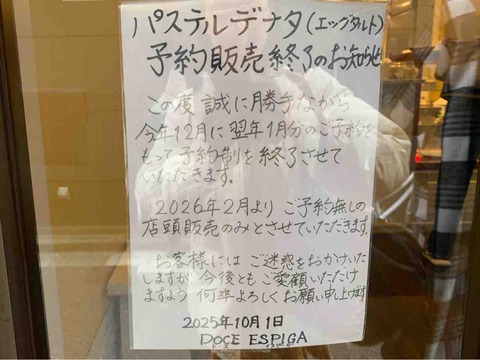 パステルデナタ(エッグタルト)
予約販売終了のお知らせ
この度 誠に勝手ながら
今年12月に翌年1月分のご予約を
もって予約制を終了させて
いただきます。
2026年2月より ご予約無しの
店頭販売のみとさせていただきます。
お客様には ご迷惑をおかけいた
しますが 今後とも ご愛顧いただけ
ますよう 何卒よろしくお願い申し上げます
2025年10月1日
DOCE ESPIGA